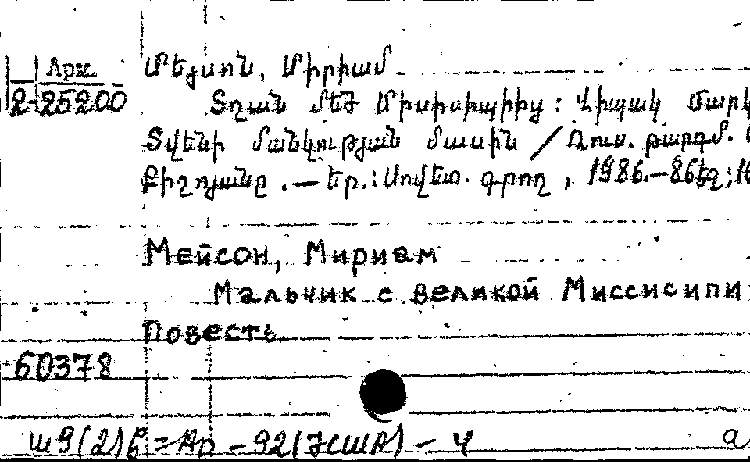 Арм. Մեյսոն, Միրիամ
2-25200 Տղան մեծ Միսիսիպիից : Վիպակ Մարկ
Տվենի մանկության մասին / Ռուս. թարգմ.
Քիշոյանը .— Եր.: Սովետ. գրող , 1986.—86էջ;16
Мейсон, Мириам
Мальчик с великой Миссисипи:
Повесть
60378
ш9(2)6=Ар – 92(7США) – 4 а